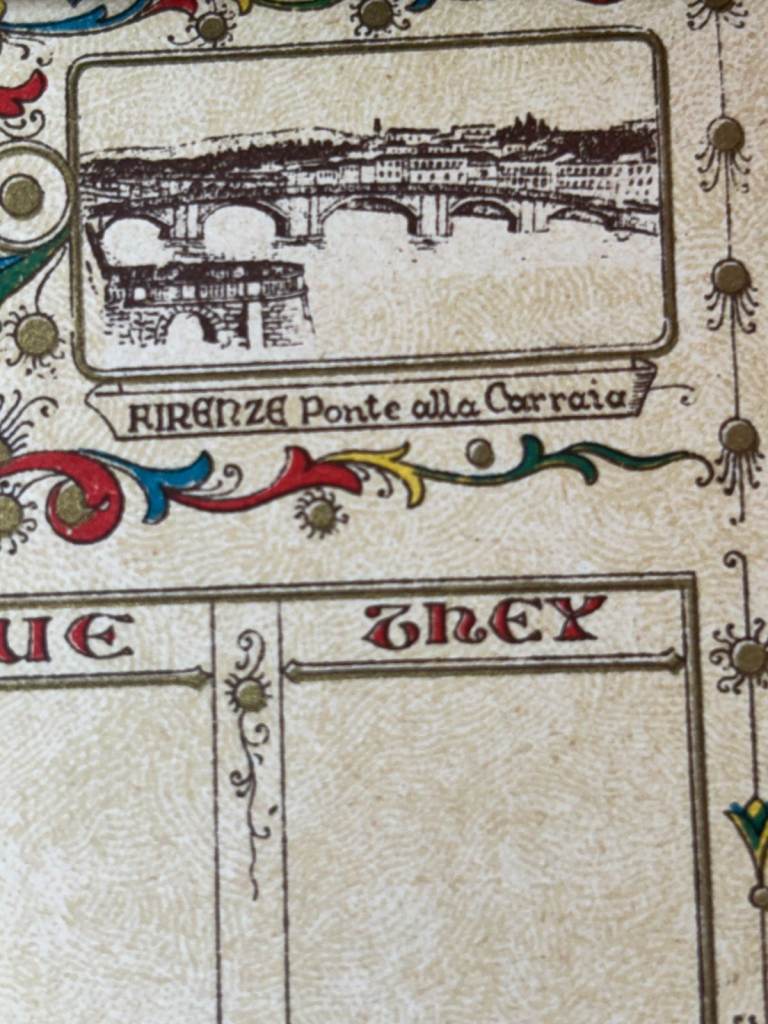 FIRENZE Ponte alla Carraia
UE
THEY